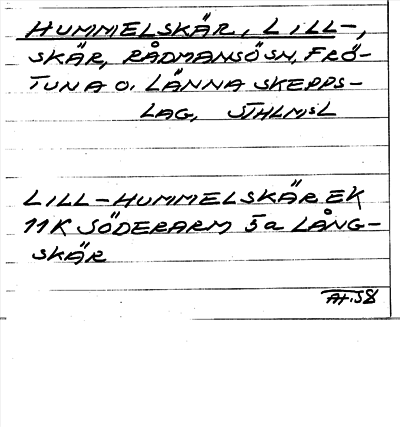 HUMMELSKÄR, LILL-,
SKÄR, RÅDMANSÖ SN, FRÖ-
TUNA O. LÄNNA SKEPPS-
LAG, STHLMS L
LILL-HUMMELSKÄR EK
11K SÖDERARM 5a LÅNG-
SKÄR